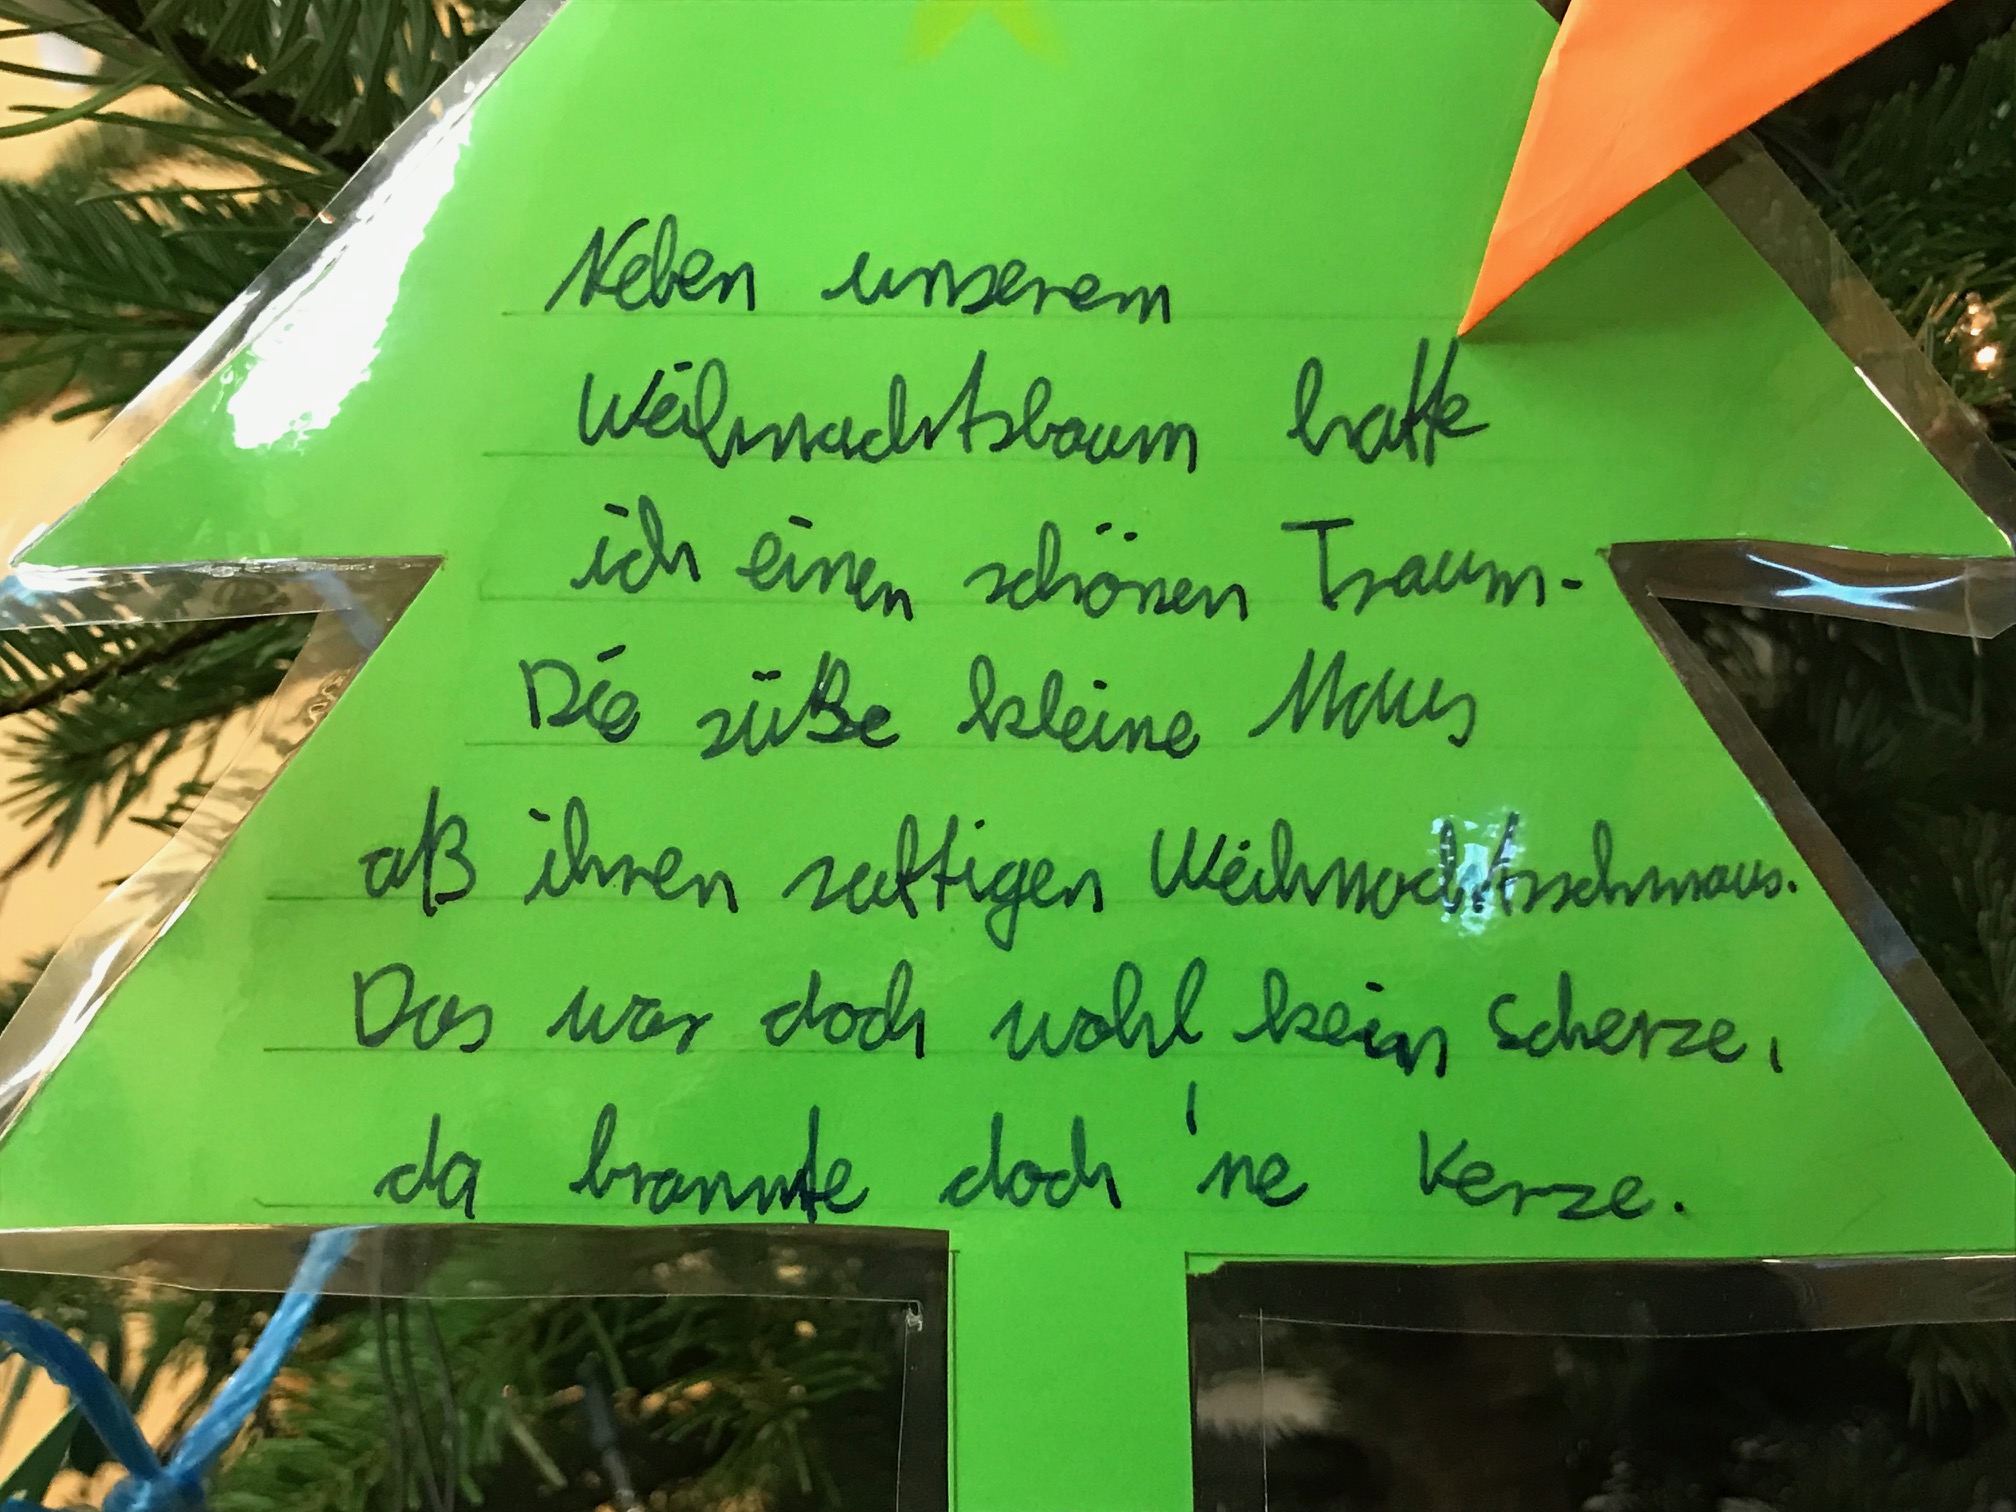 Neben unserem
Weihnachtsbaum hatte
ich einen schönen Traum-
Die süße kleine Maus
aß ihren saftigen Weihnachtsschmaus.
Das war doch wohl kein Scherze,
da brannte doch 'ne Kerze.